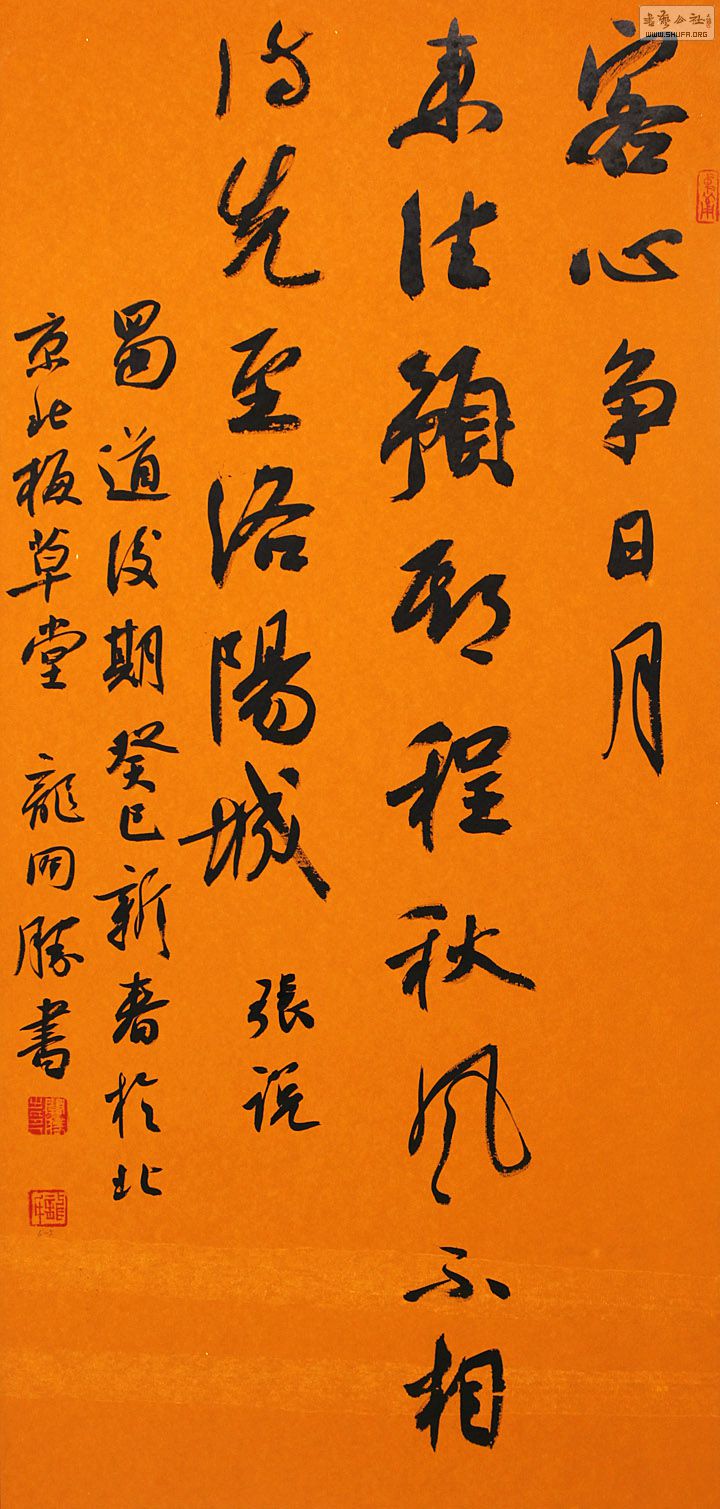 书艺公社
WWW.SHUFA.ORG
客心争日月
来往預期程秋風不相
待先至洛陽城 張説
蜀道後期癸巳新春於北
京北梅草堂 龍開勝書